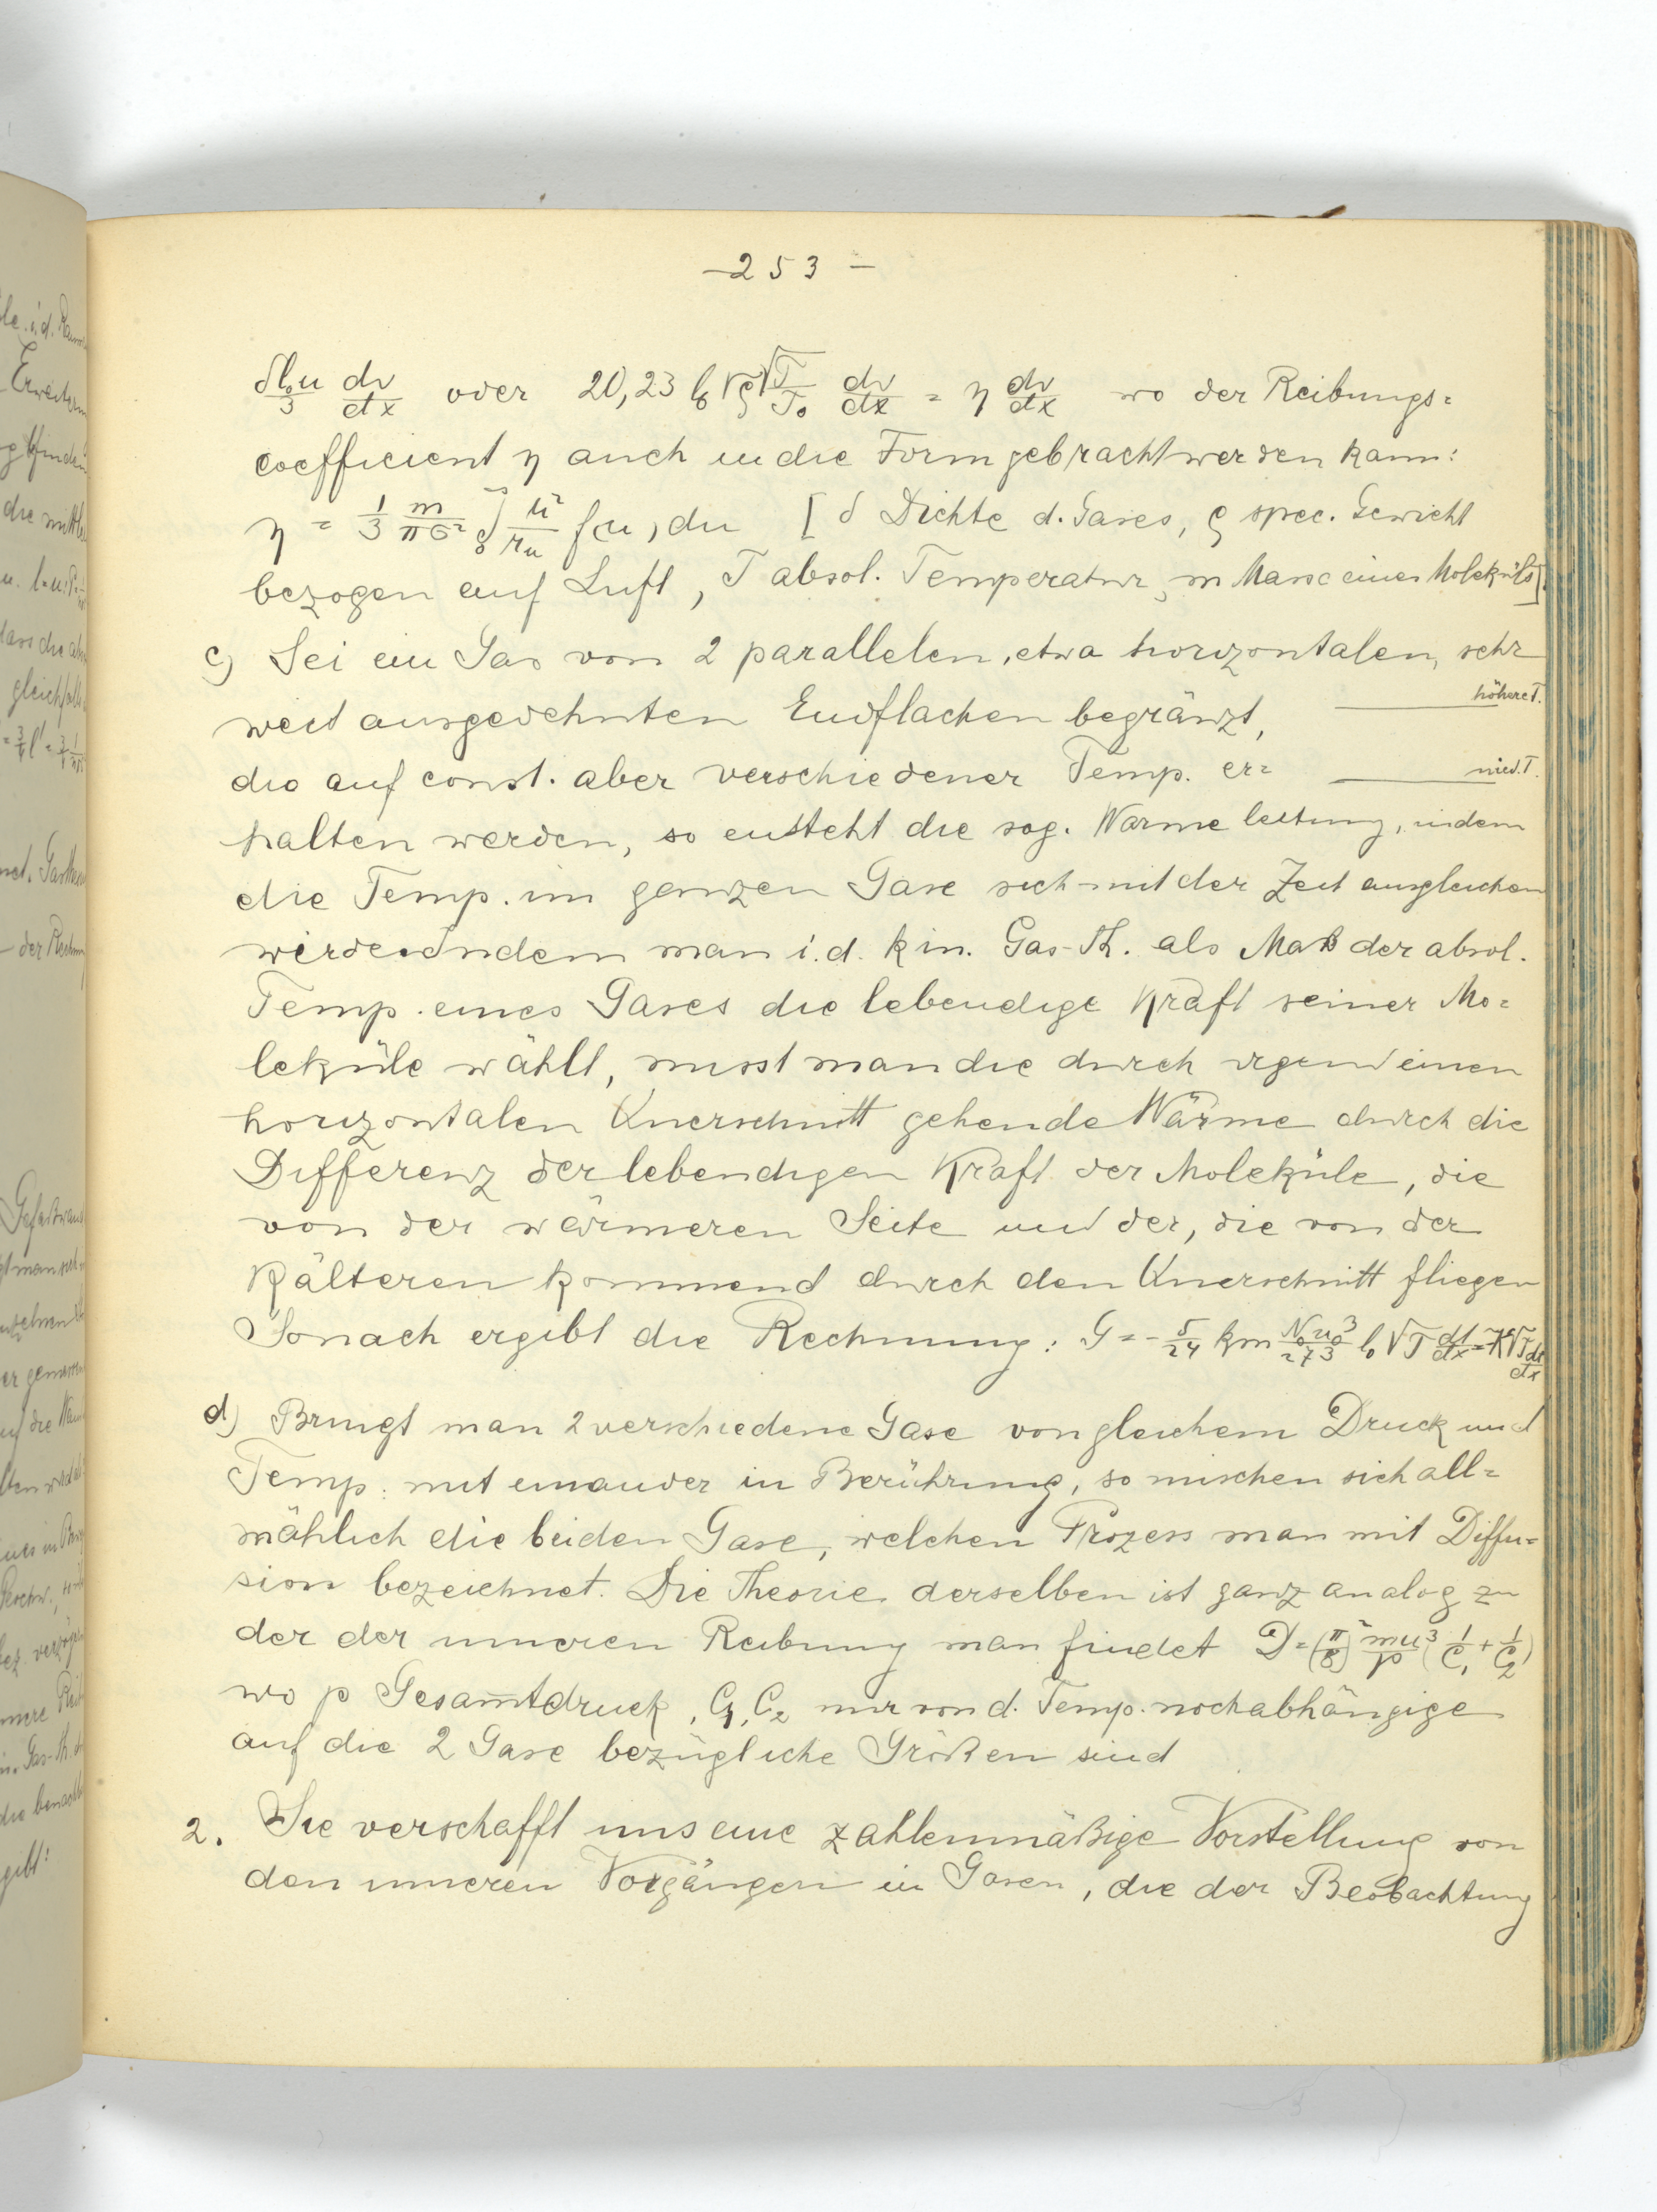 – 253 –
δl₀u/3 dv/dx oder 20,23 l₀ √ρ √T/T₀ dv/dx = η dv/dx wo der Reibungs=
coefficient η auch in die Form gebracht werden kann:
η = 1/3 m/πσ² ∫₀^∞ u²/r_u f(u) du [δ Dichte d. Gases, ρ spec. Gewicht
bezogen auf Luft, T absol. Temperatur, m Masse eines Moleküls].
c) Sei ein Gas von 2 parallelen, etwa horizontalen, sehr
weit ausgedehnten Endflachen begränzt,
höhere T.
die auf const. aber verschiedener Temp. er=
nied. T.
halten werden, so entsteht die sog. Warme leitung, indem
die Temp. im ganzen Gase sich mit der Zeit ausgleichen
wird. Indem man i. d. kin. Gas-Th. als Maß der absol.
Temp. eines Gases die lebendige Kraft seiner Mo=
leküle wählt, misst man die durch irgend einen
horizontalen Querschnitt gehende Wärme durch die
Differenz der lebendigen Kraft der Moleküle, die
von der wärmeren Seite und der, die von der
Kälteren kommend durch den Querschnitt fliegen
Sonach ergibt die Rechnung: G = - 5/24 km N₀u₀³/273 l₀ √T dt/dx = K√T dt/dx
d) Bringt man 2 verschiedene Gase von gleichem Druck und
Temp. mit einander in Berührung, so mischen sich all=
mählich die beiden Gase, welchen Prozess man mit Diffu=
sion bezeichnet. Die Theorie derselben ist ganz analog zu
der der inneren Reibung man findet D = (π/8)² mu³/p (1/C₁ + 1/C₂)
wo p Gesamtdruck, C₁, C₂ nur von d. Temp. noch abhängige
auf die 2 Gase bezügliche Größen sind
2. Sie verschafft uns eine zahlenmäßige Vorstellung von
den inneren Vorgängen in Gasen, die der Beobachtung